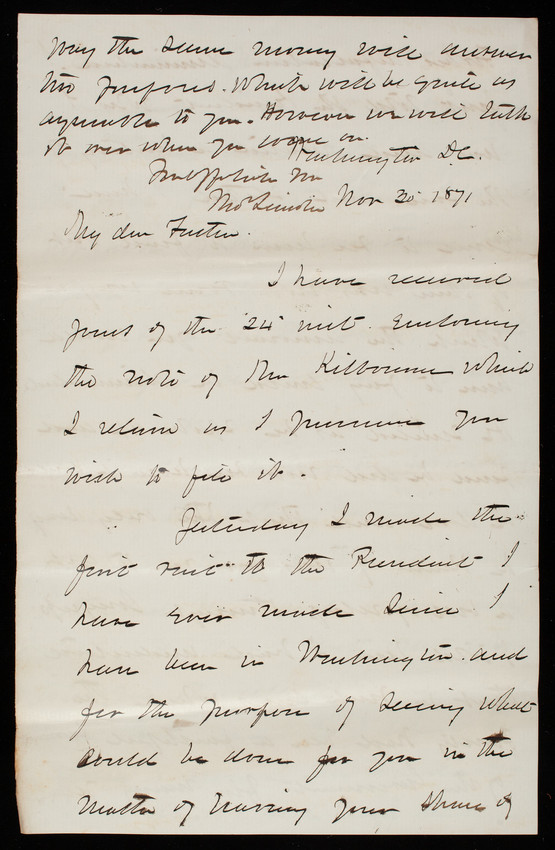 way the same money will answer
two purposes. Which will be quite as
agreeable to you. However we will talk
it over when you come on.
Washington D.C.
Nov 30 1871
My dear Father.
I have received
yours of the 24 inst. enclosing
the note of Mr Kilbourne which
I return as I presume you
wish to file it.
Yesterday I made the
first visit to the President I
have ever made since I
have been in Washington. and
for the purpose of seeing what
could be done for you in the
matter of having your share of